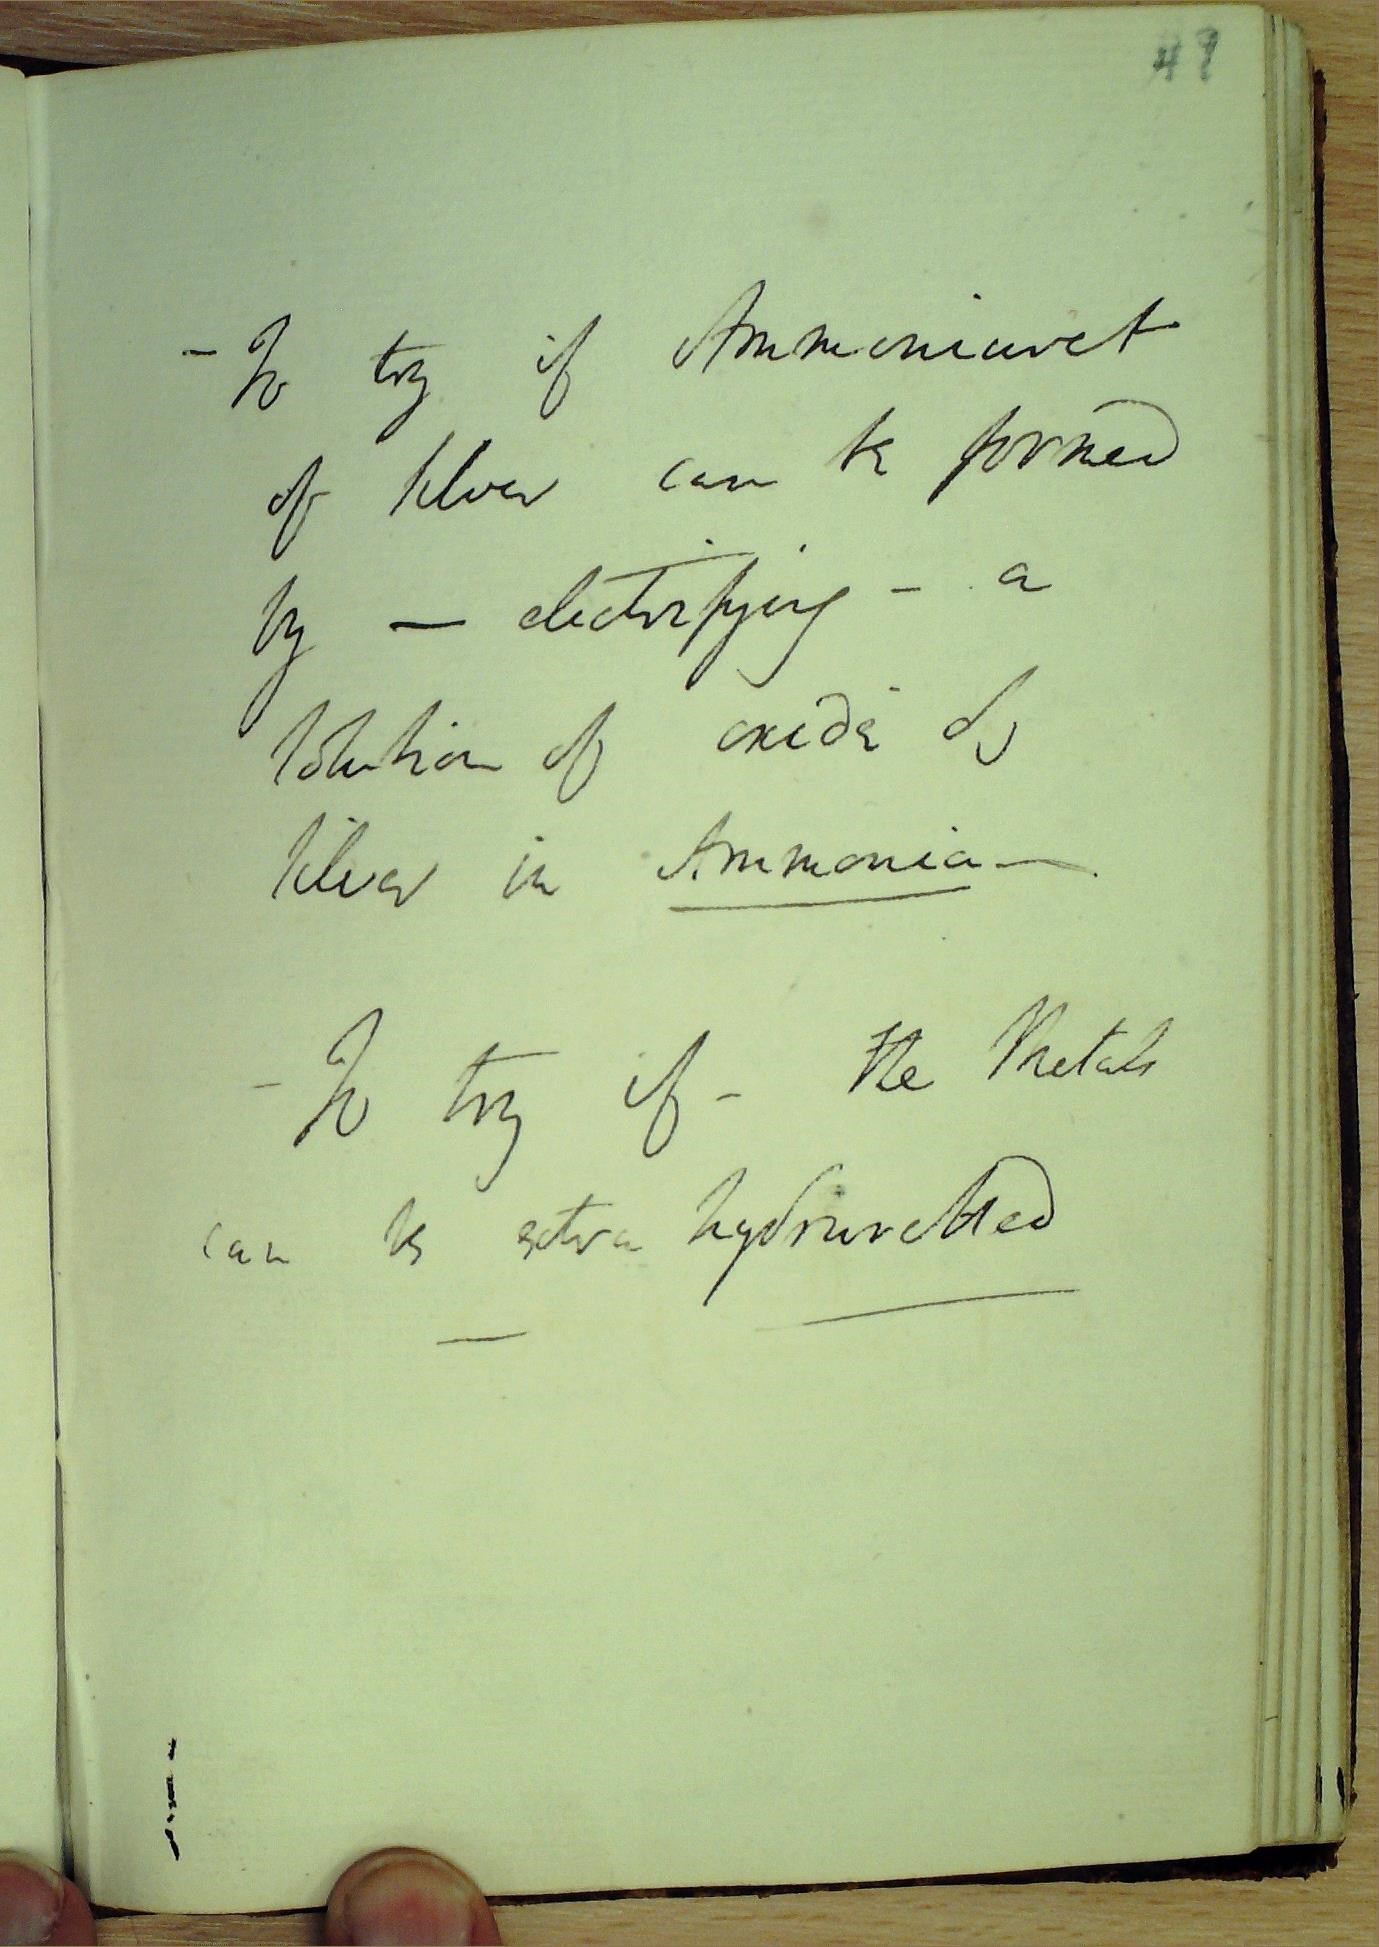 - To try if Ammoniuret
of silver can be formed
by — electrifying - a
solution of oxide of
silver in Ammonia—
- To try if - the Metals
can be extra hydruretted